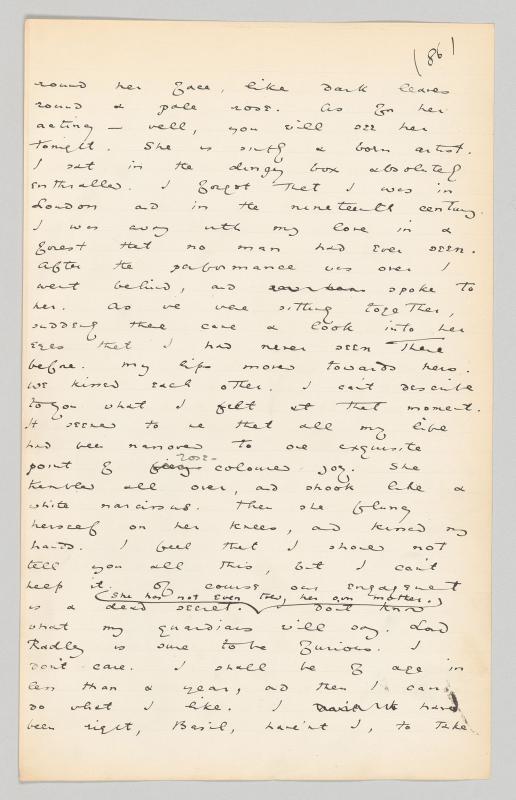 (86)
round her face, like dark leaves
round a pale rose. As for her
acting – well, you will see her
tonight. She is simply a born artist.
I sat in the dingy box absolutely
enthralled. I forgot that I was in
London and in the nineteenth century.
I was away with my love in a
forest that no man had ever seen.
After the performance was over I
went behind, and spoke to
her. As we were sitting together,
suddenly there came a look into her
eyes that I had never seen there
before. My lips moved towards hers.
We kissed each other. I can't describe
to you what I felt at that moment.
It seemed to me that all my life
had been narrowed to one exquisite
rose-
point of fiery coloured joy. She
trembled all over, and shook like a
white narcissus. Then she flung
herself on her knees, and kissed my
hands. I feel that I should not
tell you all this, but I can't
help it. Of course our engagement
(She has not even told her own mother.)
is a dead secret. Don't know
what my guardians will say. Lord
Radley is sure to be furious. I
don't care. I shall be of age in
less than a year, and then I can
do what I like. I have
been right, Basil, have'nt I, to take